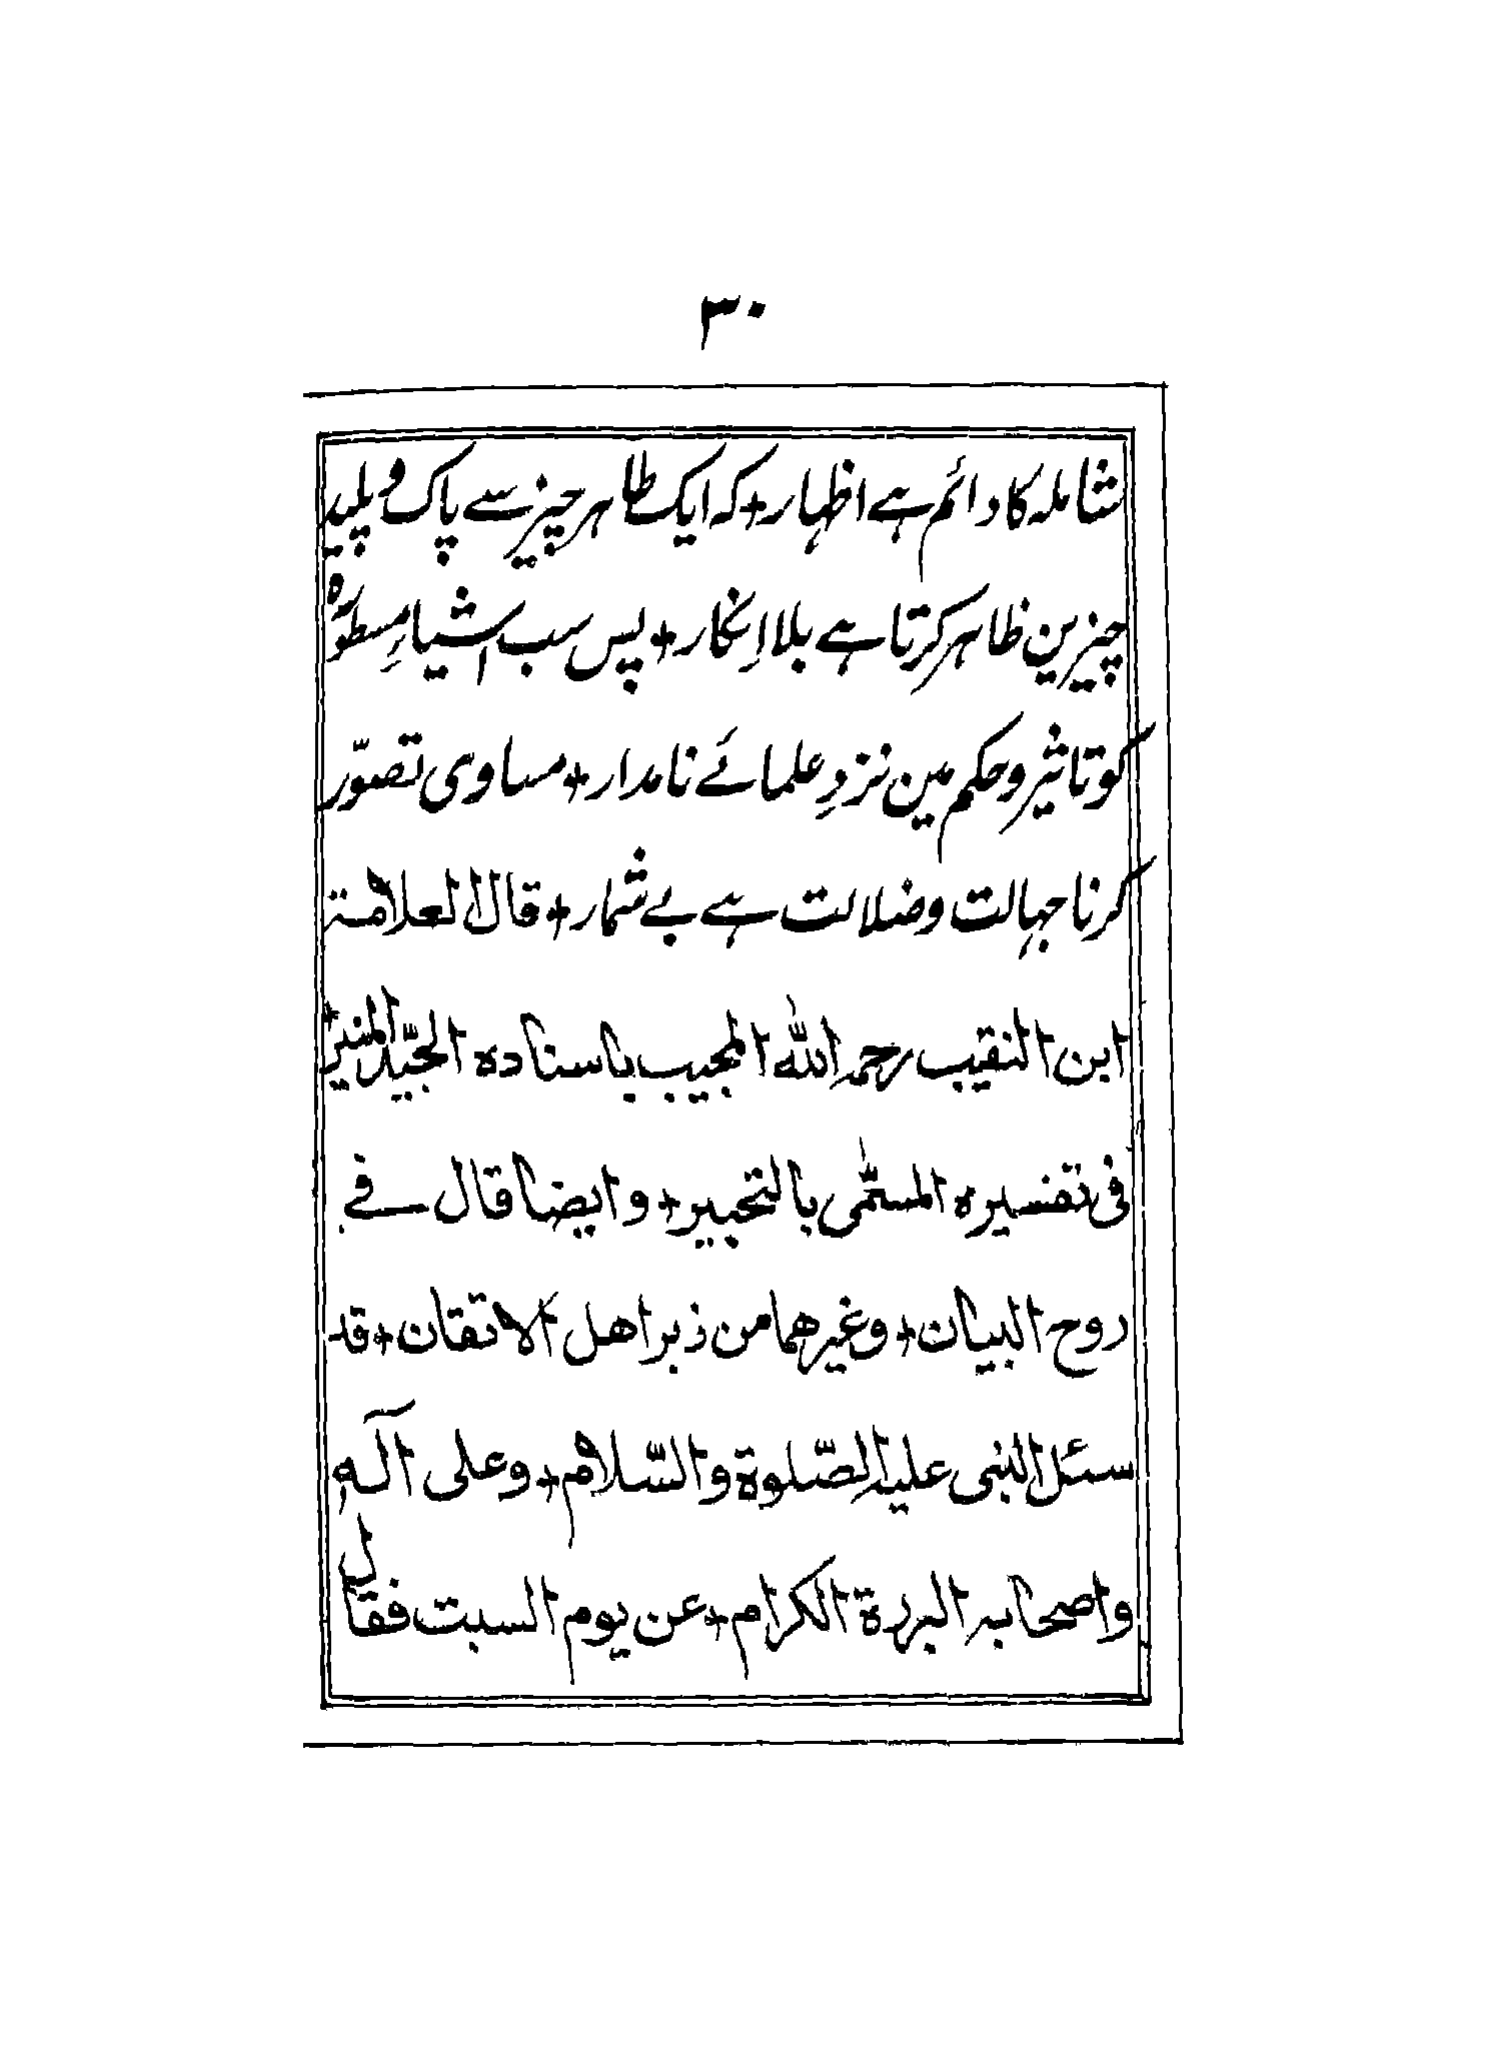 ۳۰
شاملہ کا دائم ہے اظہار + کہ ایک طاہر چیز سے پاک و پلید
چیزین ظاہر کرتا ہے بلا اِنکار + پس سب اشیاءِ مسطورہ
کو تاثیر و حکم مین نزدِ علمائے نامدار + مساوی تصوّر
کرنا جہالت و ضلالت ہے بے شمار + قال العلامة
ابن النقیب رحمہ اللّٰہ المجیب باسنادہ الجیّد المنیر +
فی تفسیرہ المسمّٰی بالتحبیر + و ایضا قال فے
روح البیان + وغیرھما من زبر اھل الاتقان + قد
سئل النبی علیہ الصّلوة والسّلام + وعلی آلہٖ
واصحابہ البررة الکرام + عن یوم السبت فقال